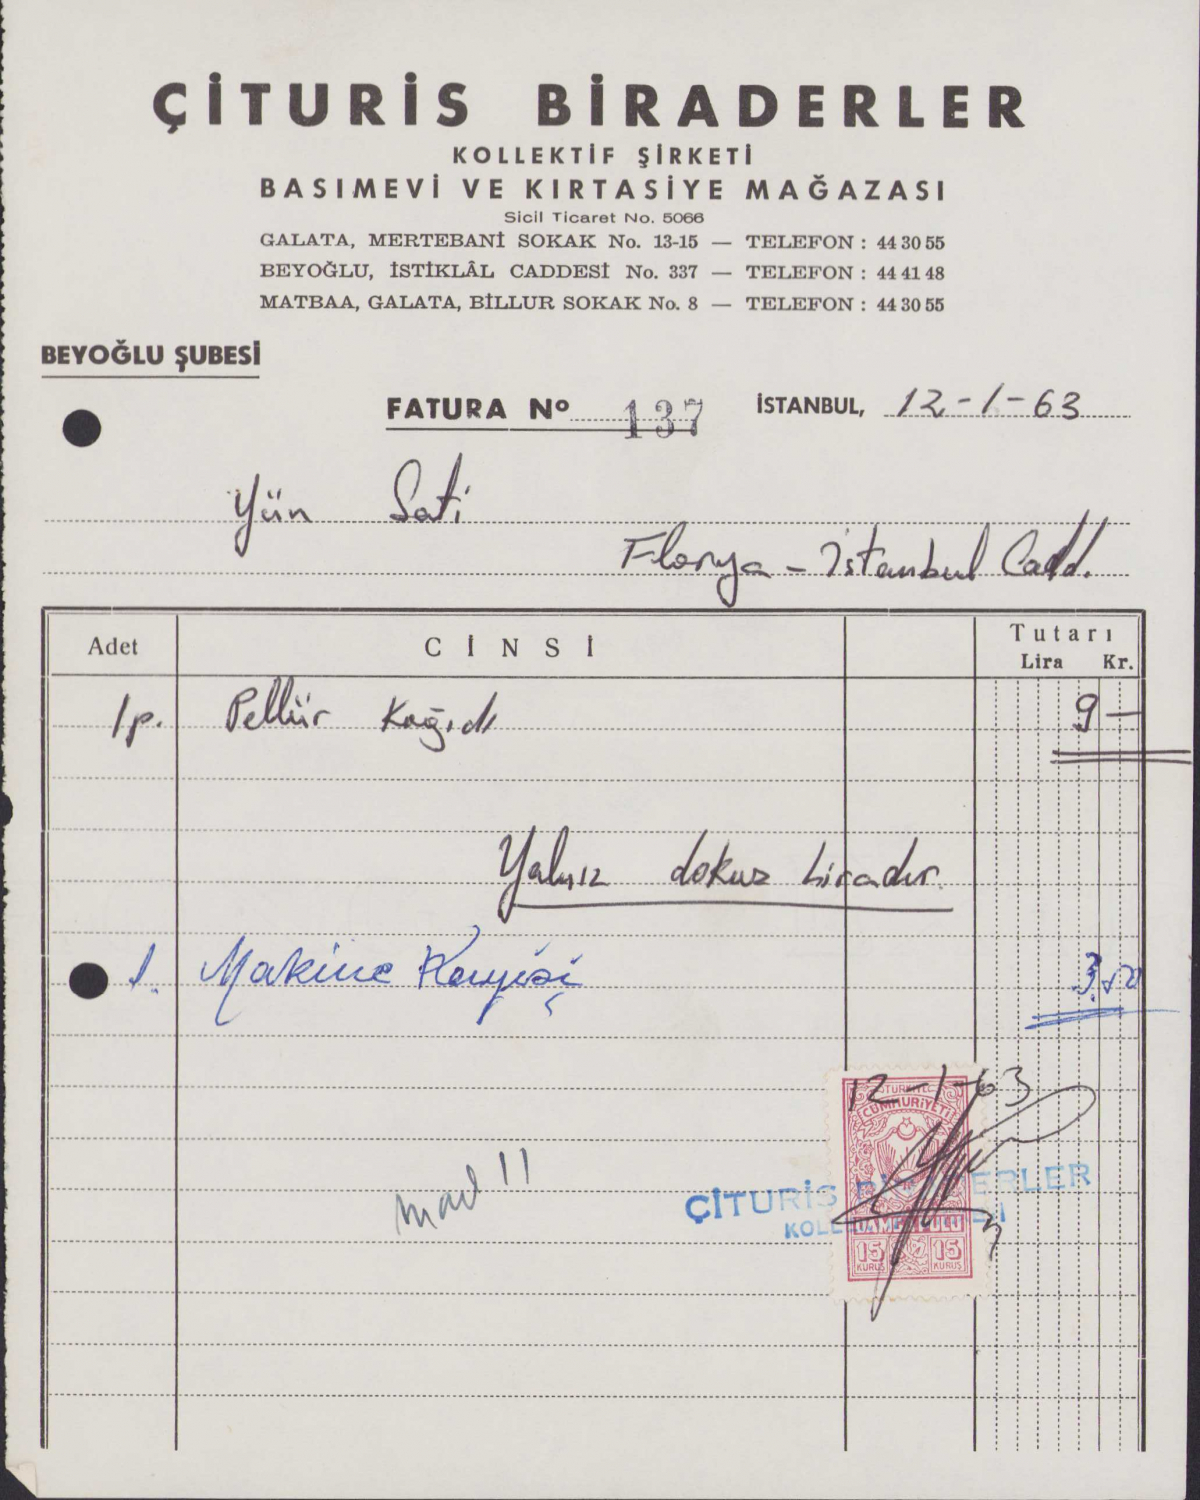 ÇİTURİS BİRADERLER
KOLLEKTİF ŞİRKETİ
BASIMEVİ VE KIRTASİYE MAĞAZASI
Sicil Ticaret No. 5066
GALATA, MERTEBANİ SOKAK No. 13-15 — TELEFON : 44 30 55
BEYOĞLU, İSTİKLÂL CADDESİ No. 337 — TELEFON : 44 41 48
MATBAA, GALATA, BİLLUR SOKAK No. 8 — TELEFON : 44 30 55
BEYOĞLU ŞUBESİ
FATURA Nº 137 İSTANBUL, 12-1-63
Yün Sati
Florya - İstanbul Cadd.
Adet CİNSİ Tutarı
Lira Kr.
1p. Pellür Kağıdı 9 —
Yalnız dokuz Liradır.
1. Makine 3.50
12-1-63
TÜRKİYE
CUMHURİYETİ
ÇİTURİS BİRADERLER
DAMGA PULU
15 15
KURUŞ KURUŞ